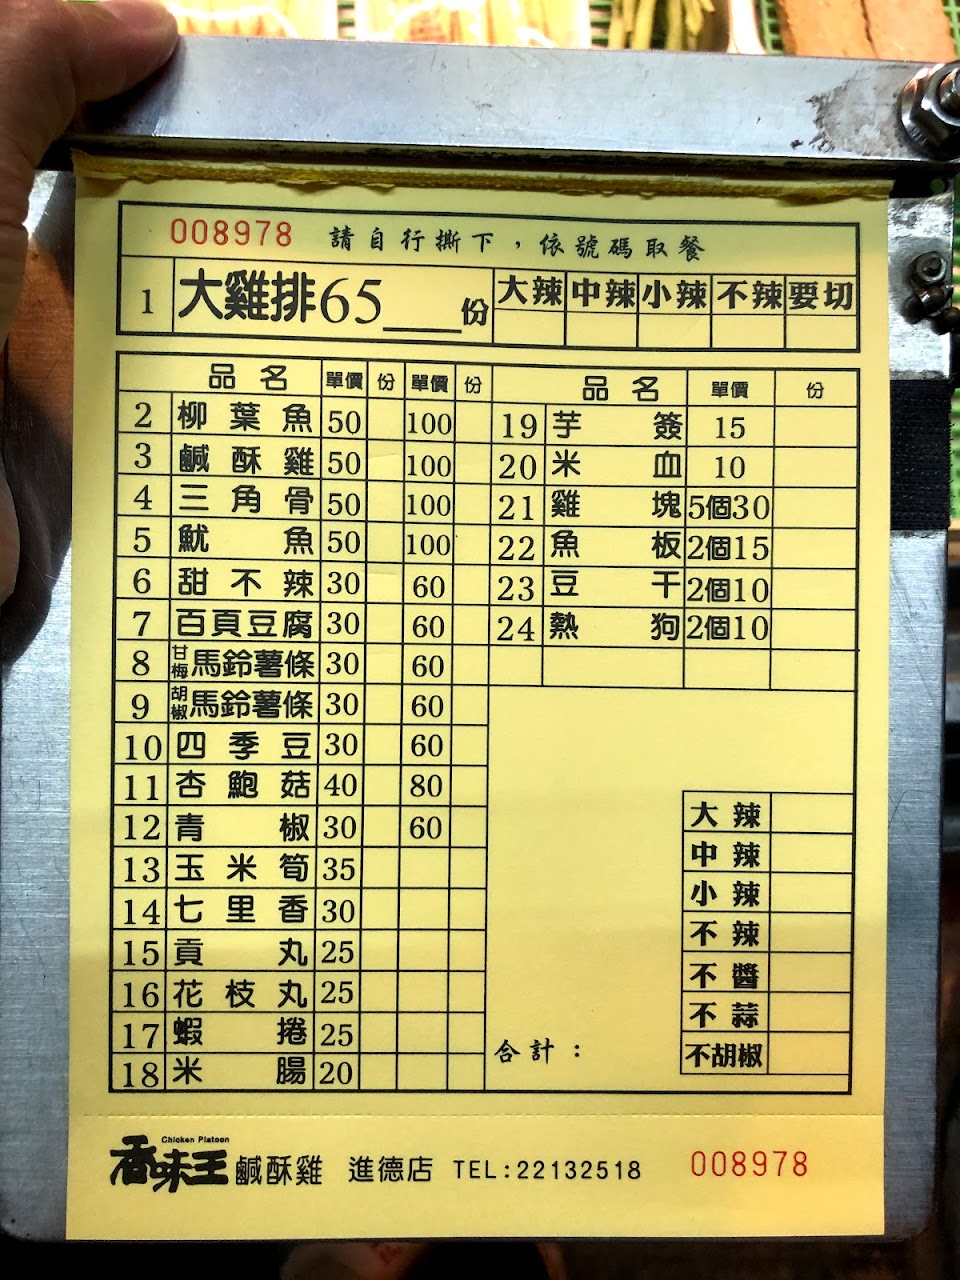 008978 請自行撕下，依號碼取餐
1 大雞排65___份 大辣 中辣 小辣 不辣 要切
品名 單價 份 單價 份 品名 單價 份
2 柳葉魚 50 100 19 芋簽 15
3 鹹酥雞 50 100 20 米血 10
4 三角骨 50 100 21 雞塊 5個30
5 魷魚 50 100 22 魚板 2個15
6 甜不辣 30 60 23 豆干 2個10
7 百頁豆腐 30 60 24 熱狗 2個10
8 甘梅馬鈴薯條 30 60
9 胡椒馬鈴薯條 30 60
10 四季豆 30 60
11 杏鮑菇 40 80
12 青椒 30 60
13 玉米筍 35
14 七里香 30
15 貢丸 25
16 花枝丸 25
17 蝦捲 25
18 米腸 20
大辣
中辣
小辣
不辣
不醬
不蒜
不胡椒
合計：
Chicken Platoon
香味王 鹹酥雞 進德店 TEL:22132518 008978